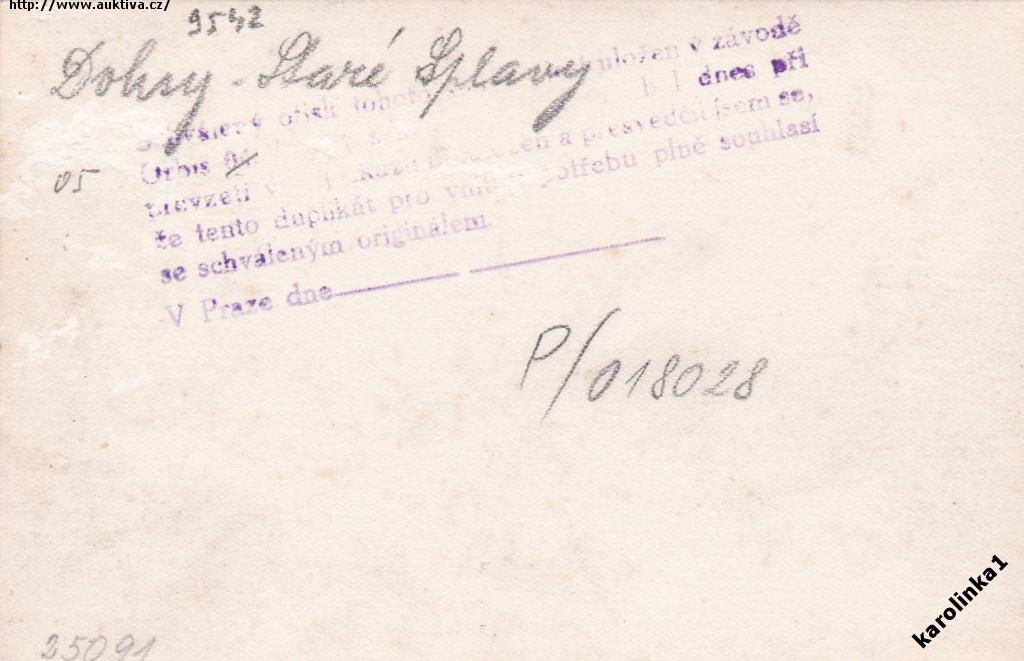 http://www.auktiva.cz/
9542
Doksy - Staré Splavy
otisk tohoto uložen v závodě
Orbis dnes při
05
převzetí a přesvědčil jsem se,
že tento duplikát pro potřebu plně souhlasí
se schváleným originálem
V Praze dne
P/018028
25091
karolinka1